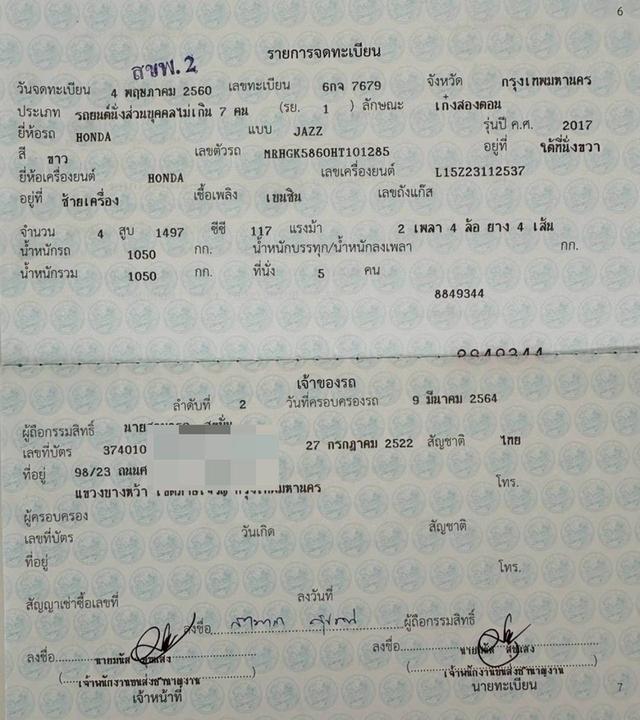 6
รายการจดทะเบียน
สขพ.2
วันจดทะเบียน 4 พฤษภาคม 2560 เลขทะเบียน 6กจ 7679 จังหวัด กรุงเทพมหานคร
ประเภท รถยนต์นั่งส่วนบุคคลไม่เกิน 7 คน (รย. 1 ) ลักษณะ เก๋งสองตอน
ยี่ห้อรถ HONDA แบบ JAZZ รุ่นปี ค.ศ. 2017
สี ขาว เลขตัวรถ MRHGK5860HT101285 อยู่ที่ ใต้ที่นั่งขวา
ยี่ห้อเครื่องยนต์ HONDA เลขเครื่องยนต์ L15Z23112537
อยู่ที่ ซ้ายเครื่อง เชื้อเพลิง เบนซิน เลขถังแก๊ส
จำนวน 4 สูบ 1497 ซีซี 117 แรงม้า 2 เพลา 4 ล้อ ยาง 4 เส้น
น้ำหนักรถ 1050 กก. น้ำหนักบรรทุก/น้ำหนักลงเพลา กก.
น้ำหนักรวม 1050 กก. ที่นั่ง 5 คน
8849344
เจ้าของรถ
ลำดับที่ 2 วันที่ครอบครองรถ 9 มีนาคม 2564
ผู้ถือกรรมสิทธิ์ นาย
เลขที่บัตร 374010 27 กรกฎาคม 2522 สัญชาติ ไทย
ที่อยู่ 98/23 โทร.
แขวงบางหว้า
ผู้ครอบครอง
เลขที่บัตร วันเกิด สัญชาติ
ที่อยู่ โทร.
สัญญาเช่าซื้อเลขที่ ลงวันที่
ลงชื่อ ผู้ถือกรรมสิทธิ์
ลงชื่อ นายมนัส ลงชื่อ
(เจ้าพนักงานขนส่งชำนาญงาน) (เจ้าพนักงานขนส่งชำนาญงาน)
เจ้าหน้าที่ นายทะเบียน
7